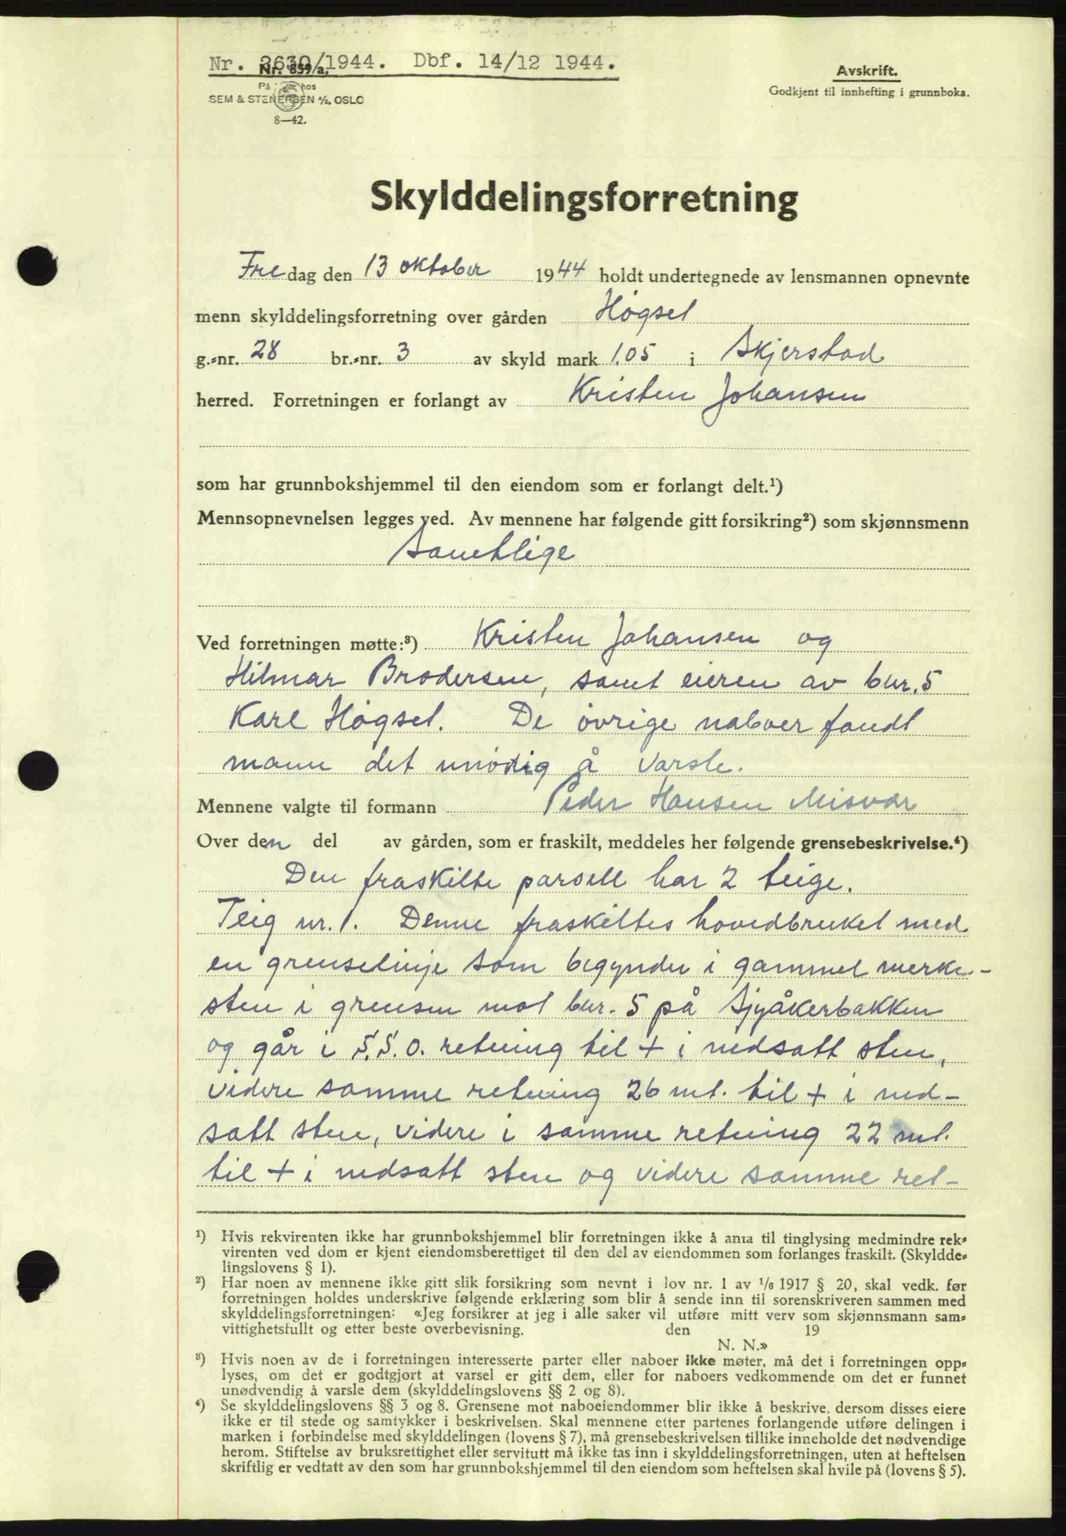 Nr. 2630/1944. Dbf. 14/12 1944.
Nr. 859/a.
På lager hos
SEM & STENERSEN A/S, OSLO
8—42.
Avskrift.
Godkjent til innhefting i grunnboka.
Skylddelingsforretning
Fredag den 13 oktober 1944 holdt undertegnede av lensmannen opnevnte
menn skylddelingsforretning over gården Høgset
g.-nr. 28 br.-nr. 3 av skyld mark 1.05 i Skjerstad
herred. Forretningen er forlangt av Kristen Johansen
som har grunnbokshjemmel til den eiendom som er forlangt delt.¹)
Mennsopnevnelsen legges ved. Av mennene har følgende gitt forsikring²) som skjønnsmenn
Samtlige
Ved forretningen møtte:³) Kristen Johansen og
Hilmar Brodersen, samt eieren av bnr. 5
Karl Høgset. De øvrige naboer fandt
mann det unødig å varsle.
Mennene valgte til formann Peder Hansen Misvær
Over den del av gården, som er fraskilt, meddeles her følgende grensebeskrivelse.⁴)
Den fraskilte parsell har 2 teige.
Teig nr. 1. Denne fraskilles hovedbruket med
en grenselinje som begynder i gammel merke-
sten i grensen mot bnr. 5 på
og går i S.S.O. retning til + i nedsatt sten,
videre samme retning 26 mt. til + i ned-
satt sten, videre i samme retning 22 mt.
til + i nedsatt sten og videre samme ret-
¹) Hvis rekvirenten ikke har grunnbokshjemmel blir forretningen ikke å anta til tinglysing medmindre rek-
virenten ved dom er kjent eiendomsberettiget til den del av eiendommen som forlanges fraskilt. (Skyldde-
lingslovens § 1).
²) Har noen av mennene ikke gitt slik forsikring som nevnt i lov nr. 1 av 1/6 1917 § 20, skal vedk. før
forretningen holdes underskrive følgende erklæring som blir å sende inn til sorenskriveren sammen med
skylddelingsforretningen: «Jeg forsikrer at jeg i alle saker vil utføre mitt verv som skjønnsmann sam-
vittighetsfullt og etter beste overbevisning. den 19
N. N.»
³) Hvis noen av de i forretningen interesserte parter eller naboer ikke møter, må det i forretningen opp-
lyses, om det er godtgjort at varsel er gitt dem, eller for naboers vedkommende om det er funnet
unødvendig å varsle dem (skylddelingslovens §§ 2 og 8).
⁴) Se skylddelingslovens §§ 3 og 8. Grensene mot naboeiendommer blir ikke å beskrive, dersom disses eiere
ikke er til stede og samtykker i beskrivelsen. Skal mennene etter partenes forlangende utføre delingen i
marken i forbindelse med skylddelingen (lovens § 7), må grensebeskrivelsen tillike inneholde det nødvendige
herom. Stiftelse av bruksrettighet eller servitutt må ikke tas inn i skylddelingsforretningen, uten at heftelsen
skriftlig er vedtatt av den som har grunnbokshjemmel til den eiendom som heftelsen skal hvile på (lovens § 5).